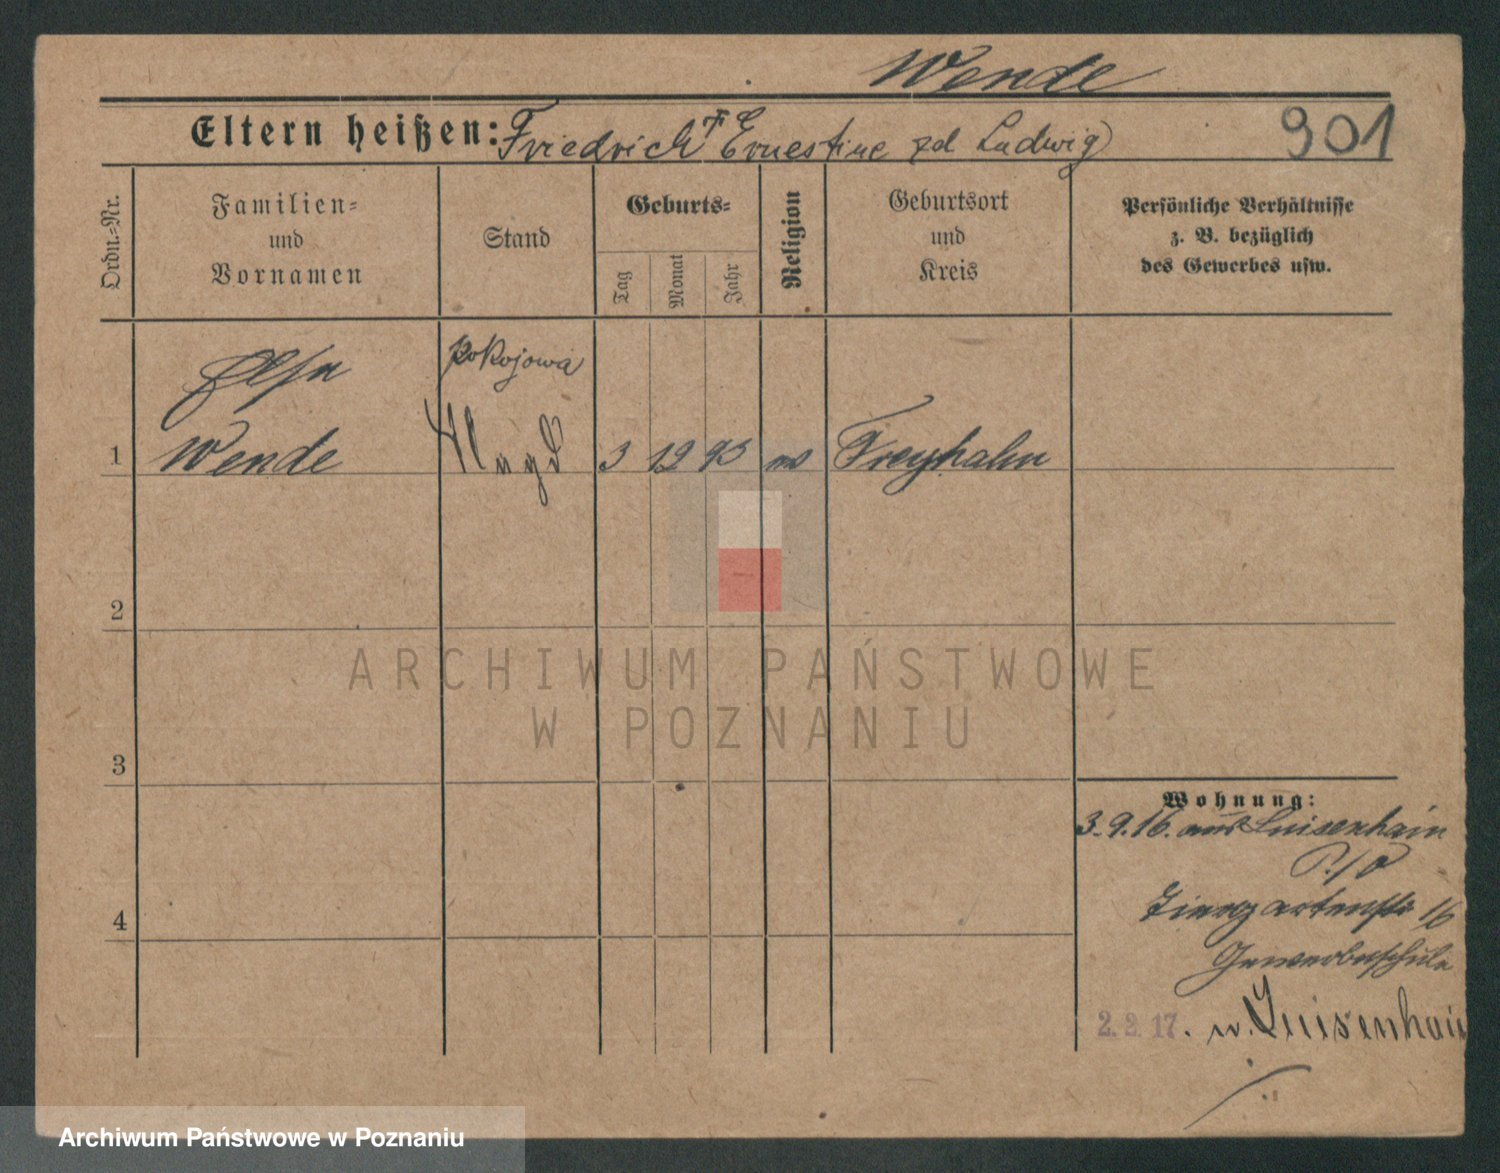 Wende
Eltern heißen: Friedrich Ernestine zd Ludwig
901
Ordn.=Nr.
Familien=
und
Vornamen
Stand
Geburts=
Tag
Monat
Jahr
Religion
Geburtsort
und
Kreis
Persönliche Verhältnisse
z. B. bezüglich
des Gewerbes usw.
Elsa
pokojowa
1 Wende Magd 3 12 93 Freyhahn
2
3
4
Wohnung:
3.9.16. aus Luisenhain
Tiergartenstr 16
Gewerbeschule
2. 2. 17. n. Luisenhain
ARCHIWUM PAŃSTWOWE
W POZNANIU
Archiwum Państwowe w Poznaniu